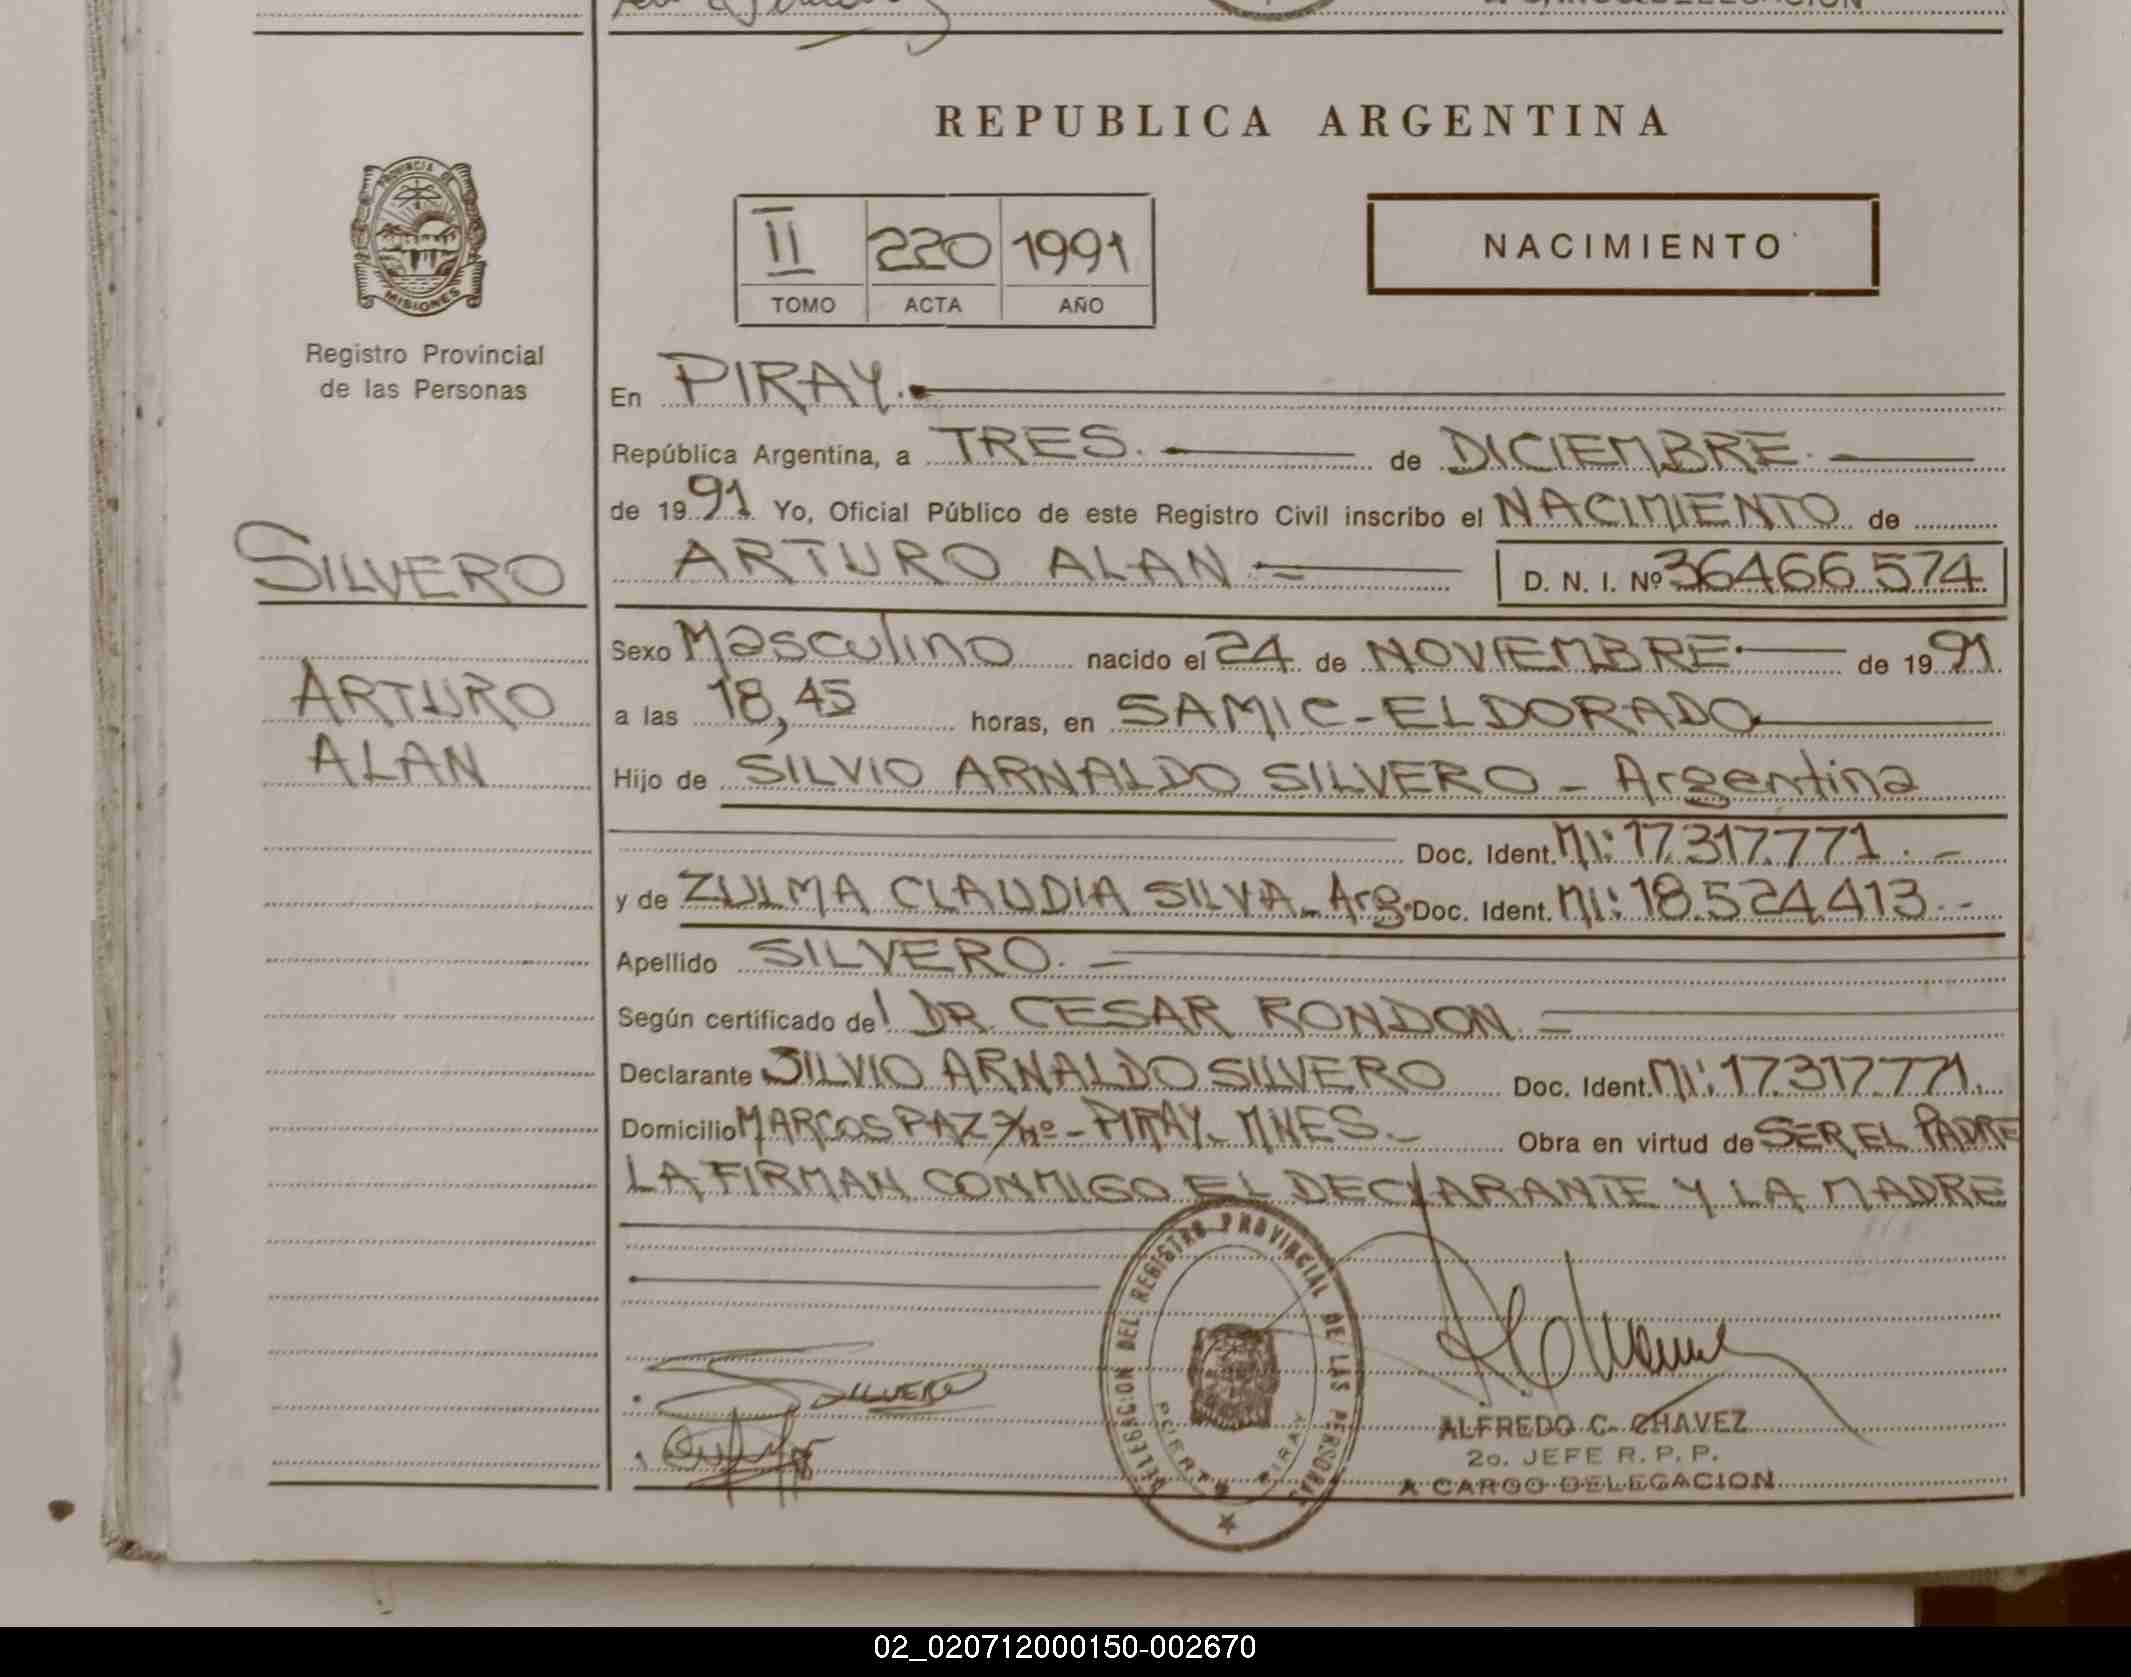 REPUBLICA ARGENTINA
PROVINCIA DE
MISIONES
Registro Provincial
de las Personas
II 220 1991
TOMO ACTA AÑO
NACIMIENTO
En PIRAY.
República Argentina, a TRES. de DICIEMBRE.
de 1991 Yo, Oficial Público de este Registro Civil inscribo el NACIMIENTO de
SILVERO
ARTURO ALAN D. N. I. Nº 36466.574
ARTURO
ALAN
Sexo Masculino nacido el 24 de NOVIEMBRE. de 1991.
a las 18,45 horas, en SAMIC-ELDORADO
Hijo de SILVIO ARNALDO SILVERO - Argentina
Doc. Ident. MI: 17.317.771.-
y de ZULMA CLAUDIA SILVA - Arg. Doc. Ident. MI: 18.524.413.-
Apellido SILVERO. -
Según certificado del DR CESAR RONDON. -
Declarante SILVIO ARNALDO SILVERO Doc. Ident. MI: 17.317.771.
Domicilio MARCOS PAZ S/Nº - PIRAY. MNES. - Obra en virtud de SER EL PADRE
LA FIRMAN CONMIGO EL DECLARANTE Y LA MADRE
SILVERO
DELEGACION DEL REGISTRO PROVINCIAL DE LAS PERSONAS
PIRAY
ALFREDO C. CHAVEZ
2o. JEFE R. P. P.
A CARGO DELEGACION
02_020712000150-002670